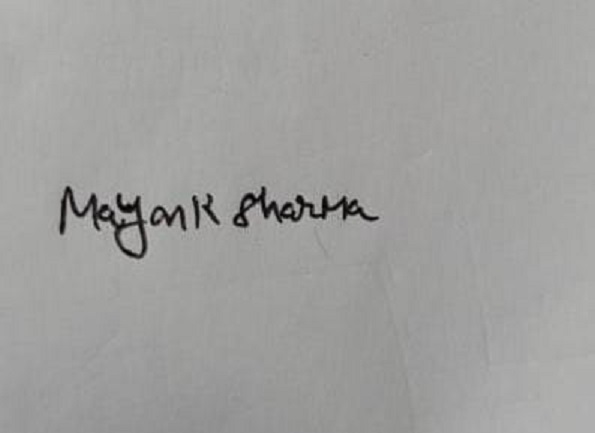 Mayank Sharma